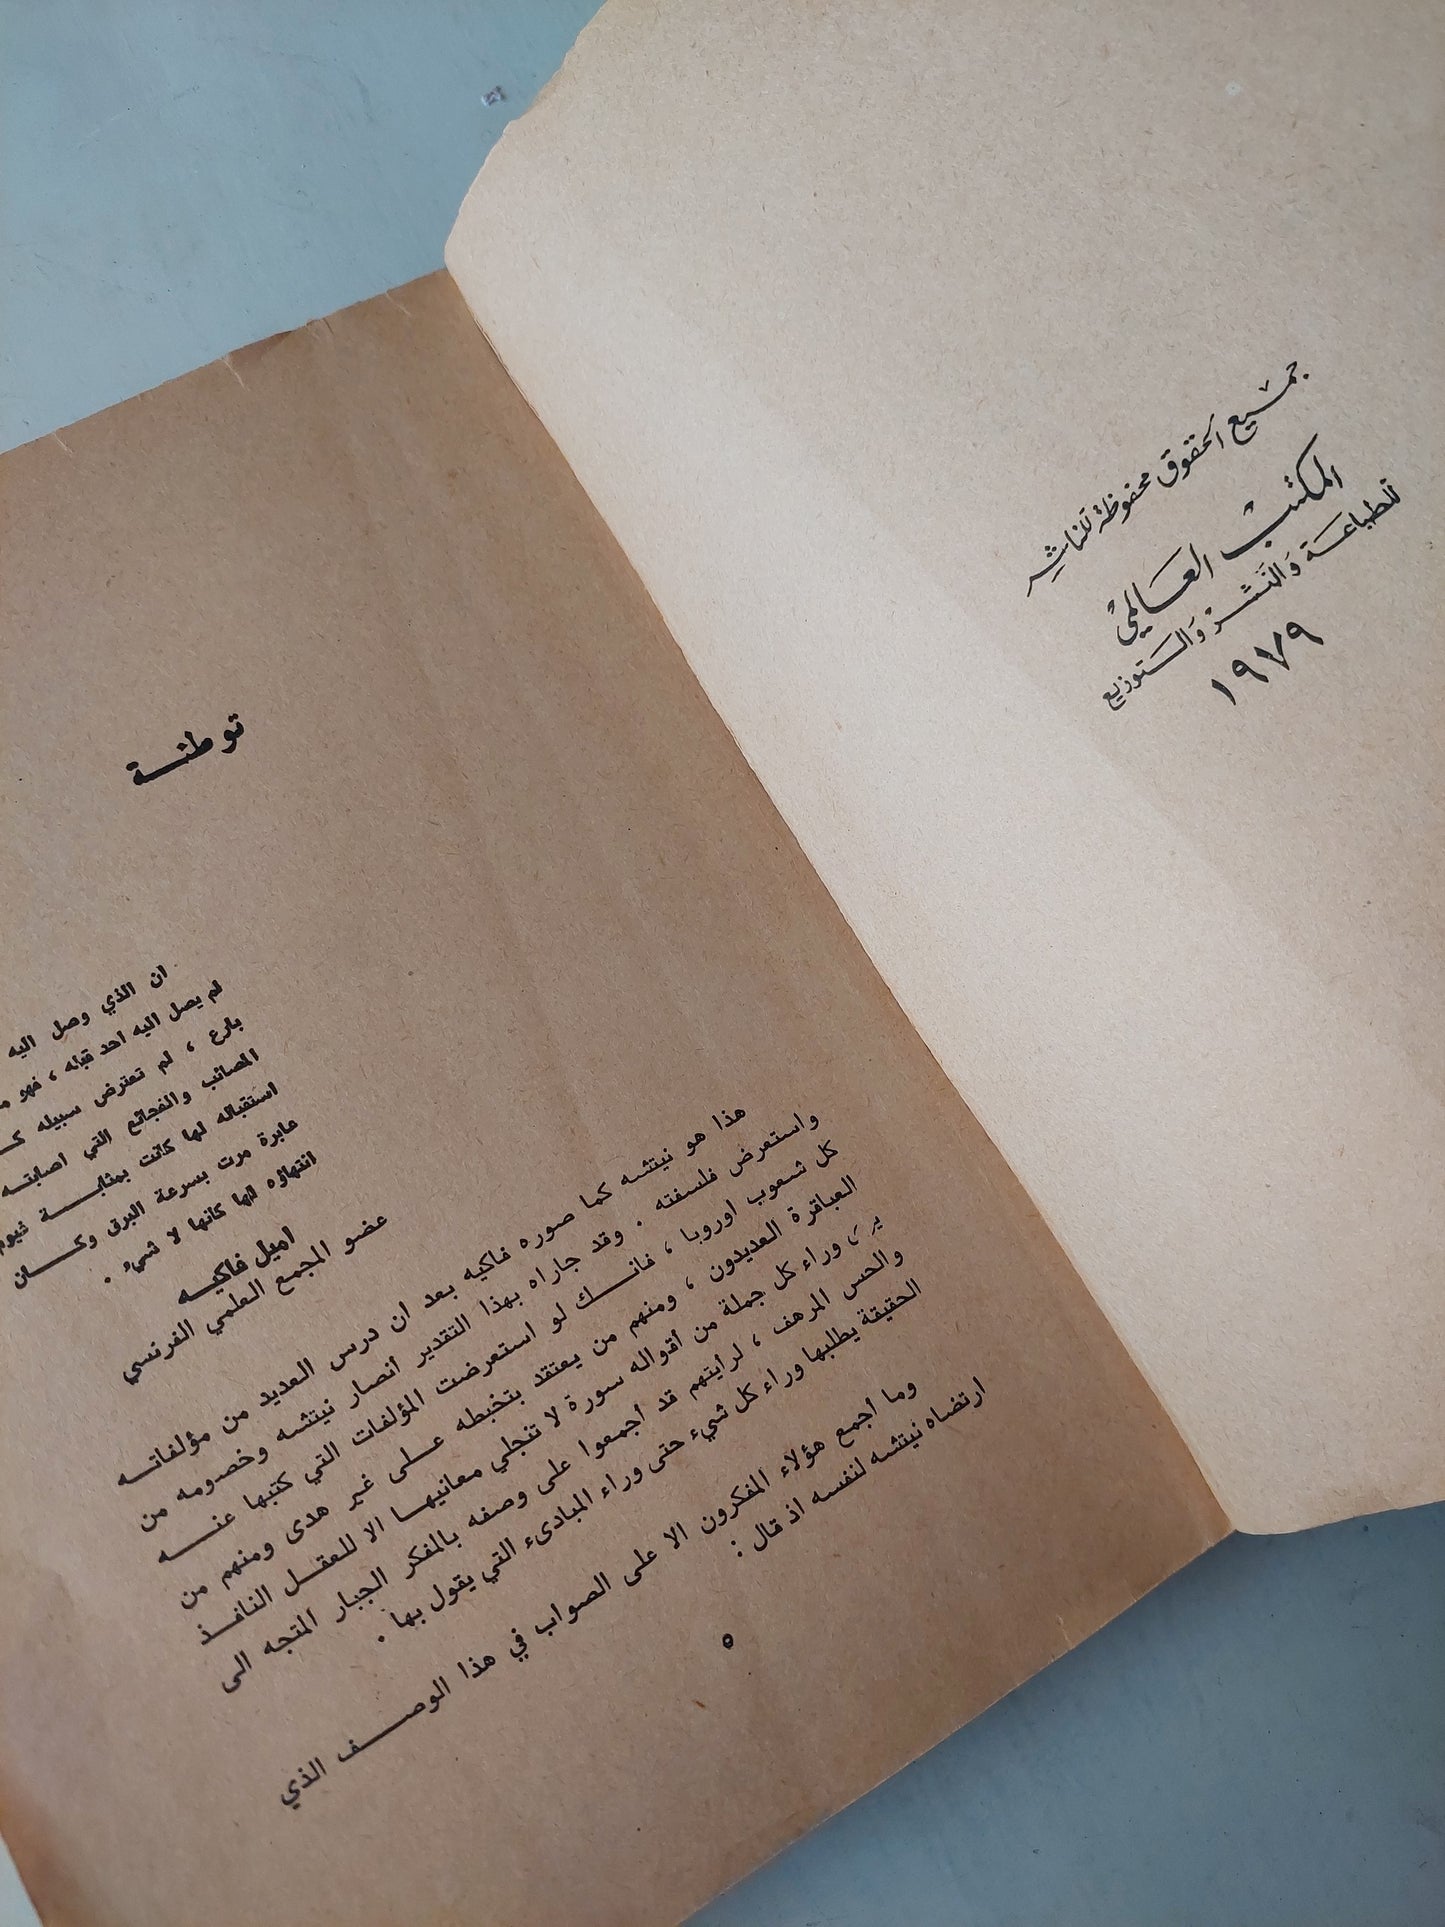 جميع الحقوق محفوظة للناشر
المكتب العالمي
للطباعة والنشر والتوزيع
١٩٧٩
توطئة
ان الذي وصل اليه
لم يصل اليه احد قبله ، فهو
بارع ، لم تعترض سبيله
المصائب والفجائع التي اصابته
استقباله لها كانت بمثابة غيوم
عابرة مرت بسرعة البرق وكان
انتهاؤه لها كانها لا شيء .
اميل فاكيه
عضو المجمع العلمي الفرنسي
هذا هو نيتشه كما صوره فاكيه بعد ان درس العديد من مؤلفاته
واستعرض فلسفته . وقد جاراه بهذا التقدير أنصار نيتشه وخصومه من
كل شعوب اوروبا ، فانك لو استعرضت المؤلفات التي كتبها عنه
العباقرة العديدون ، ومنهم من يعتقد بتخبطه على غير هدى ومنهم من
وراء كل جملة من أقواله سورة لا تنجلي معانيها الا للعقل النافذ
والحس المرهف ، لرايتهم قد أجمعوا على وصفه بالمفكر الجبار المتجه الى
الحقيقة يطلبها وراء كل شيء حتى وراء المبادىء التي يقول بها .
وما اجمع هؤلاء المفكرون الا على الصواب في هذا الوصف الذي
ارتضاه نيتشه لنفسه اذ قال :
٥